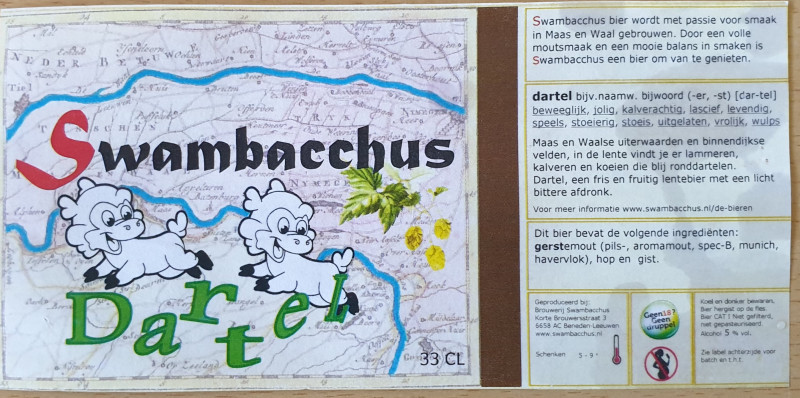 Swambacchus
Dartel
33 CL
Swambacchus bier wordt met passie voor smaak
in Maas en Waal gebrouwen. Door een volle
moutsmaak en een mooie balans in smaken is
Swambacchus een bier om van te genieten.
dartel bijv.naamw. bijwoord (-er, -st) [dar-tel]
beweeglijk, jolig, kalverachtig, lascief, levendig,
speels, stoeierig, stoeis, uitgelaten, vrolijk, wulps
Maas en Waalse uiterwaarden en binnendijkse
velden, in de lente vindt je er lammeren,
kalveren en koeien die blij ronddartelen.
Dartel, een fris en fruitig lentebier met een licht
bittere afdronk.
Voor meer informatie www.swambacchus.nl/de-bieren
Dit bier bevat de volgende ingrediënten:
gerstemout (pils-, aromamout, spec-B, munich,
havervlok), hop en gist.
Geproduceerd bij:
Brouwerij Swambacchus
Korte Brouwersstraat 3
6658 AC Beneden-Leeuwen
www.swambacchus.nl
Schenken 5 - 9 °
Geen 18?
Geen
druppel
Koel en donker bewaren,
Bier hergist op de fles
Bier CAT I Niet gefilterd,
niet gepasteuriseerd.
Alcohol 5 % vol.
Zie label achterzijde voor
batch en t.h.t.